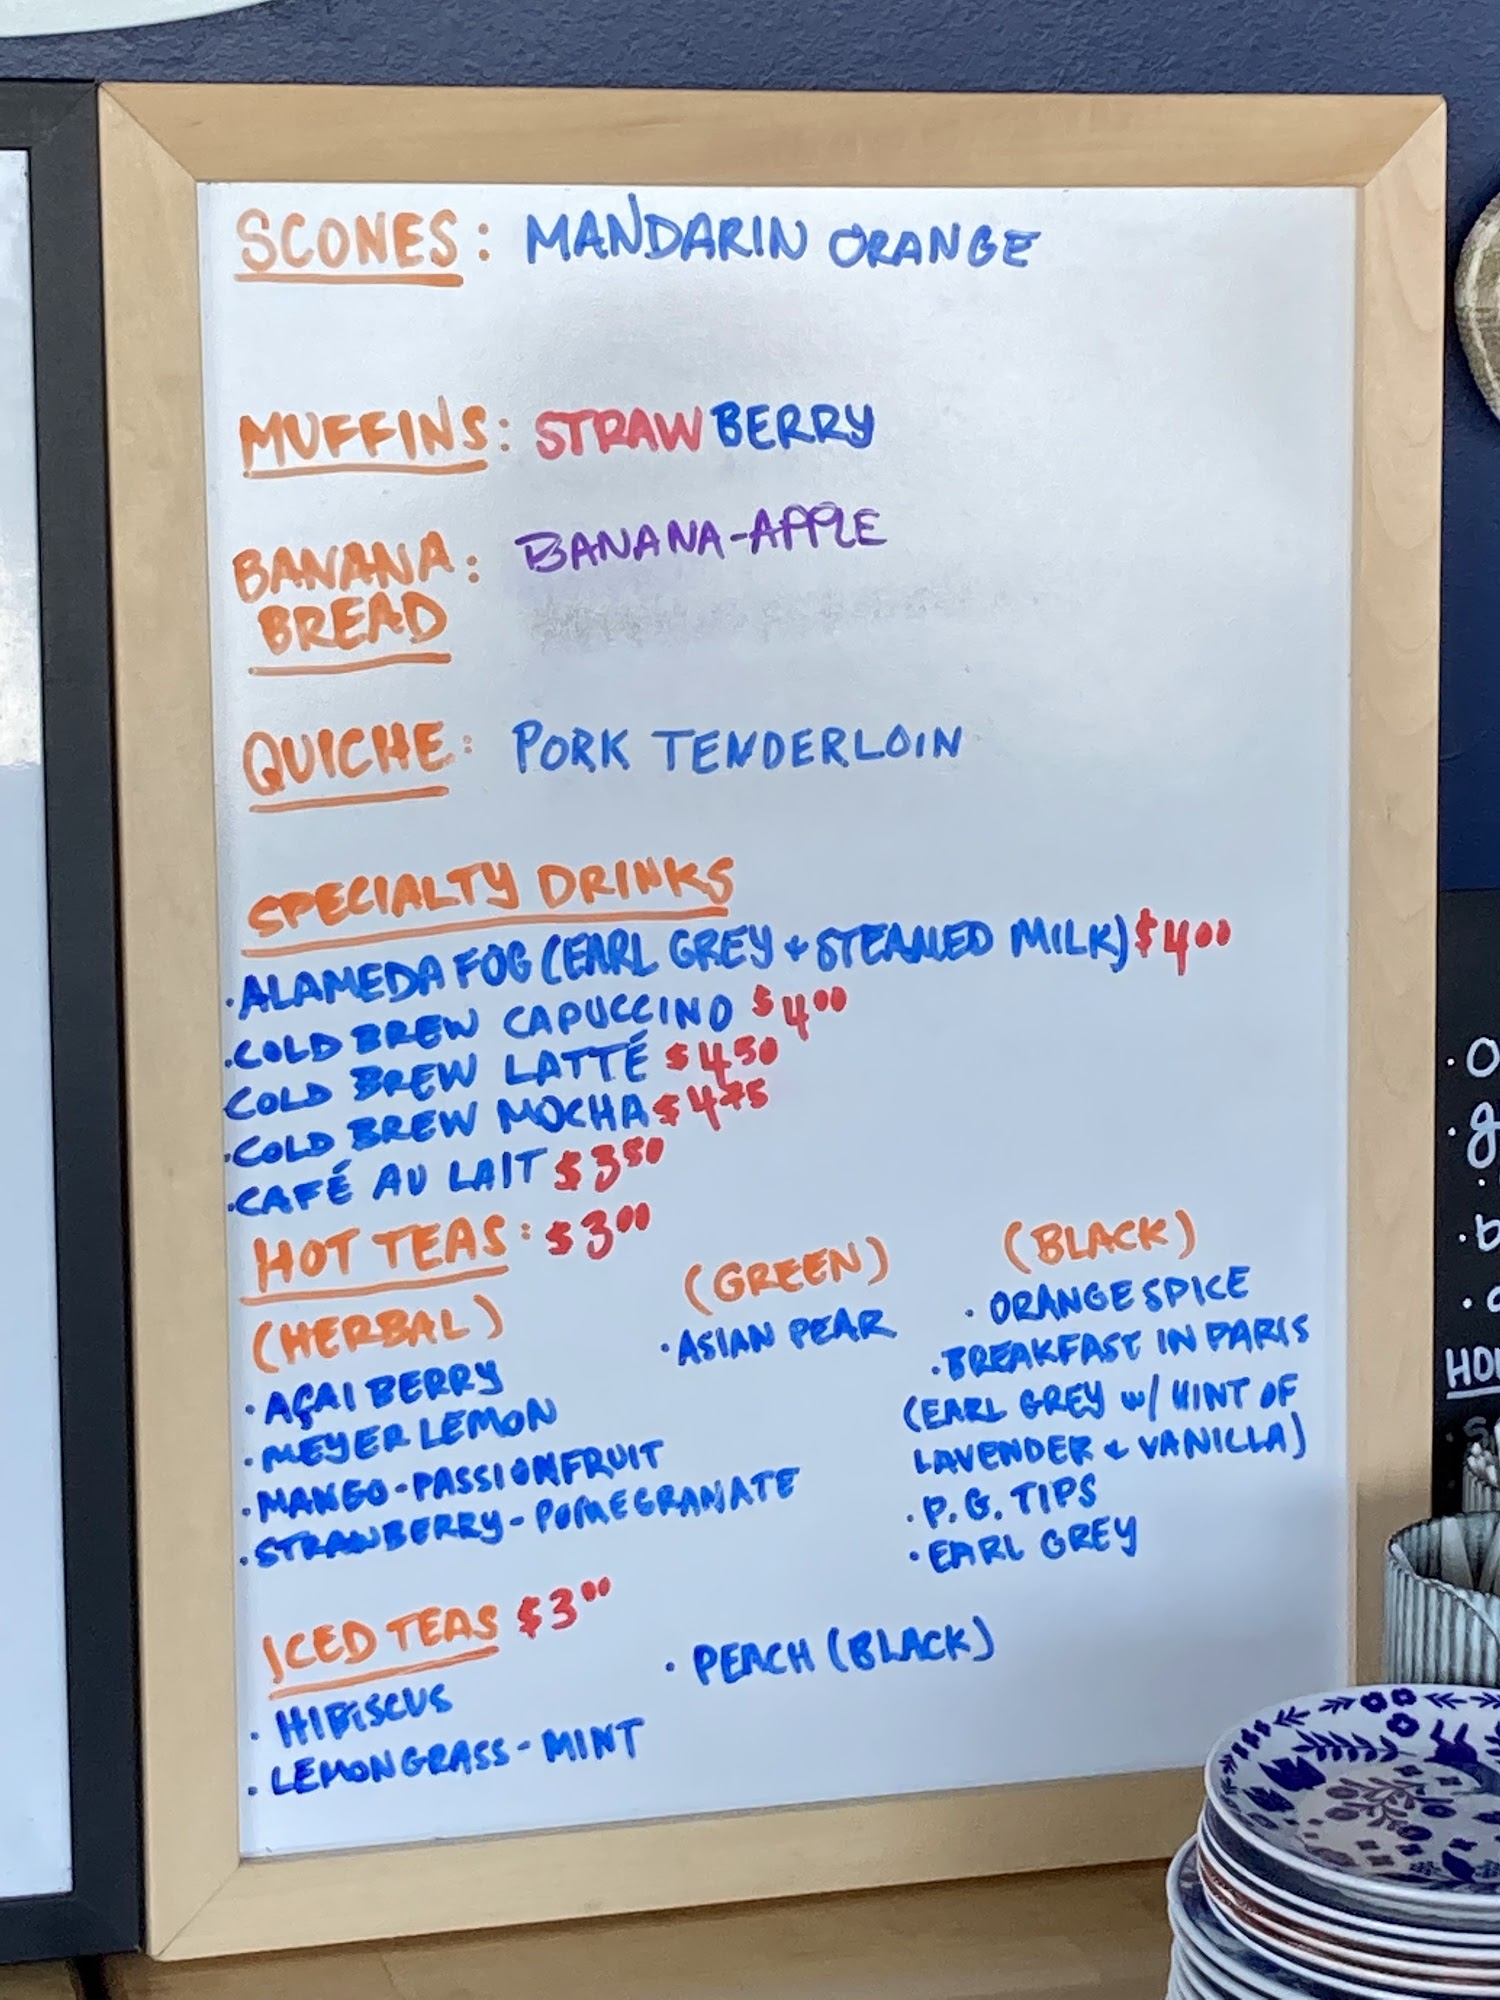 SCONES: MANDARIN ORANGE
MUFFINS: STRAWBERRY
BANANA: BANANA-APPLE
BREAD
QUICHE: PORK TENDERLOIN
SPECIALTY DRINKS
·ALAMEDA FOG (EARL GREY + STEAMED MILK) $4.00
·COLD BREW CAPUCCINO $4.00
COLD BREW LATTÉ $4.50
·COLD BREW MOCHA $4.75
·CAFÉ AU LAIT $3.50
HOT TEAS: $3.00
(HERBAL)
·AÇAI BERRY
·MEYER LEMON
·MANGO-PASSIONFRUIT
·STRAWBERRY-POMEGRANATE
(GREEN)
·ASIAN PEAR
(BLACK)
·ORANGE SPICE
·BREAKFAST IN PARIS
(EARL GREY w/ HINT OF
LAVENDER + VANILLA)
·P.G. TIPS
·EARL GREY
ICED TEAS $3.00
·HIBISCUS
·LEMONGRASS-MINT
·PEACH (BLACK)